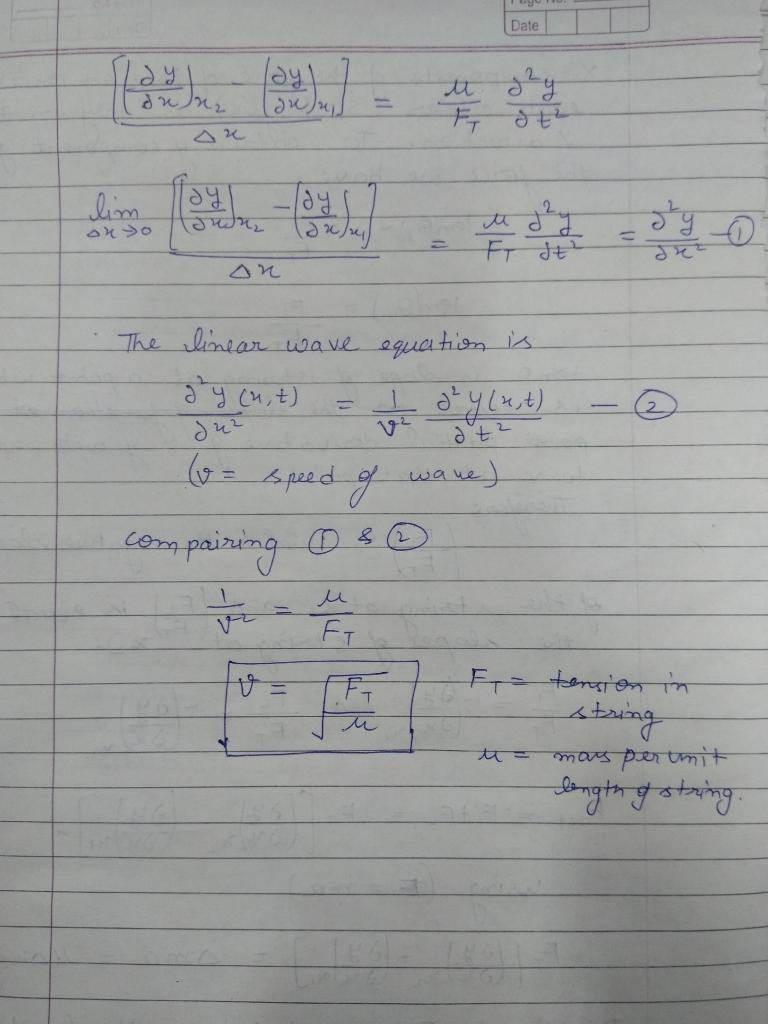 Page No.
Date
[(∂y/∂x)x₂ - (∂y/∂x)x₁] / Δx = μ/F_T ∂²y/∂t²
lim Δx→0 [(∂y/∂x)x₂ - (∂y/∂x)x₁] / Δx = μ/F_T ∂²y/∂t² = ∂²y/∂x² - ①
The linear wave equation is
∂²y(x,t)/∂x² = 1/v² ∂²y(x,t)/∂t² - ②
(v = speed of wave)
compairing ① & ②
1/v² = μ/F_T
v = √(F_T/μ)
F_T = tension in
string
μ = mass per unit
length of string.